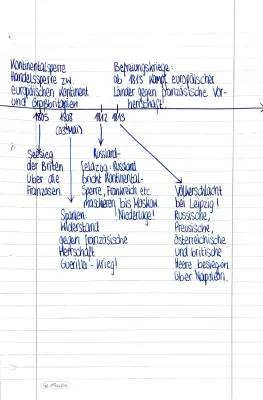 Kontinentalsperre
Handelssperre zw.
europäischen Kontinent
und Großbritanien
Befreiungskriege:
ab 1813 Kampf europäischer
Länder gegen französische Vor-
herrschaft
1805
1808
1812
1813
Seesieg
der Briten
über die
Franzosen
Spanien:
Widerstand
gegen französische
Herrschaft
Guerilla-Krieg!
Russland-
feldzug: Russland
bricht Kontinental-
Sperre, Frankreich etc.
Maschieren bis Moskau
Niederlage!
Völkerschlacht
bei Leipzig!
Russische,
Preusische,
österreichische
und britische
Heere besiegen
über Napoleon.